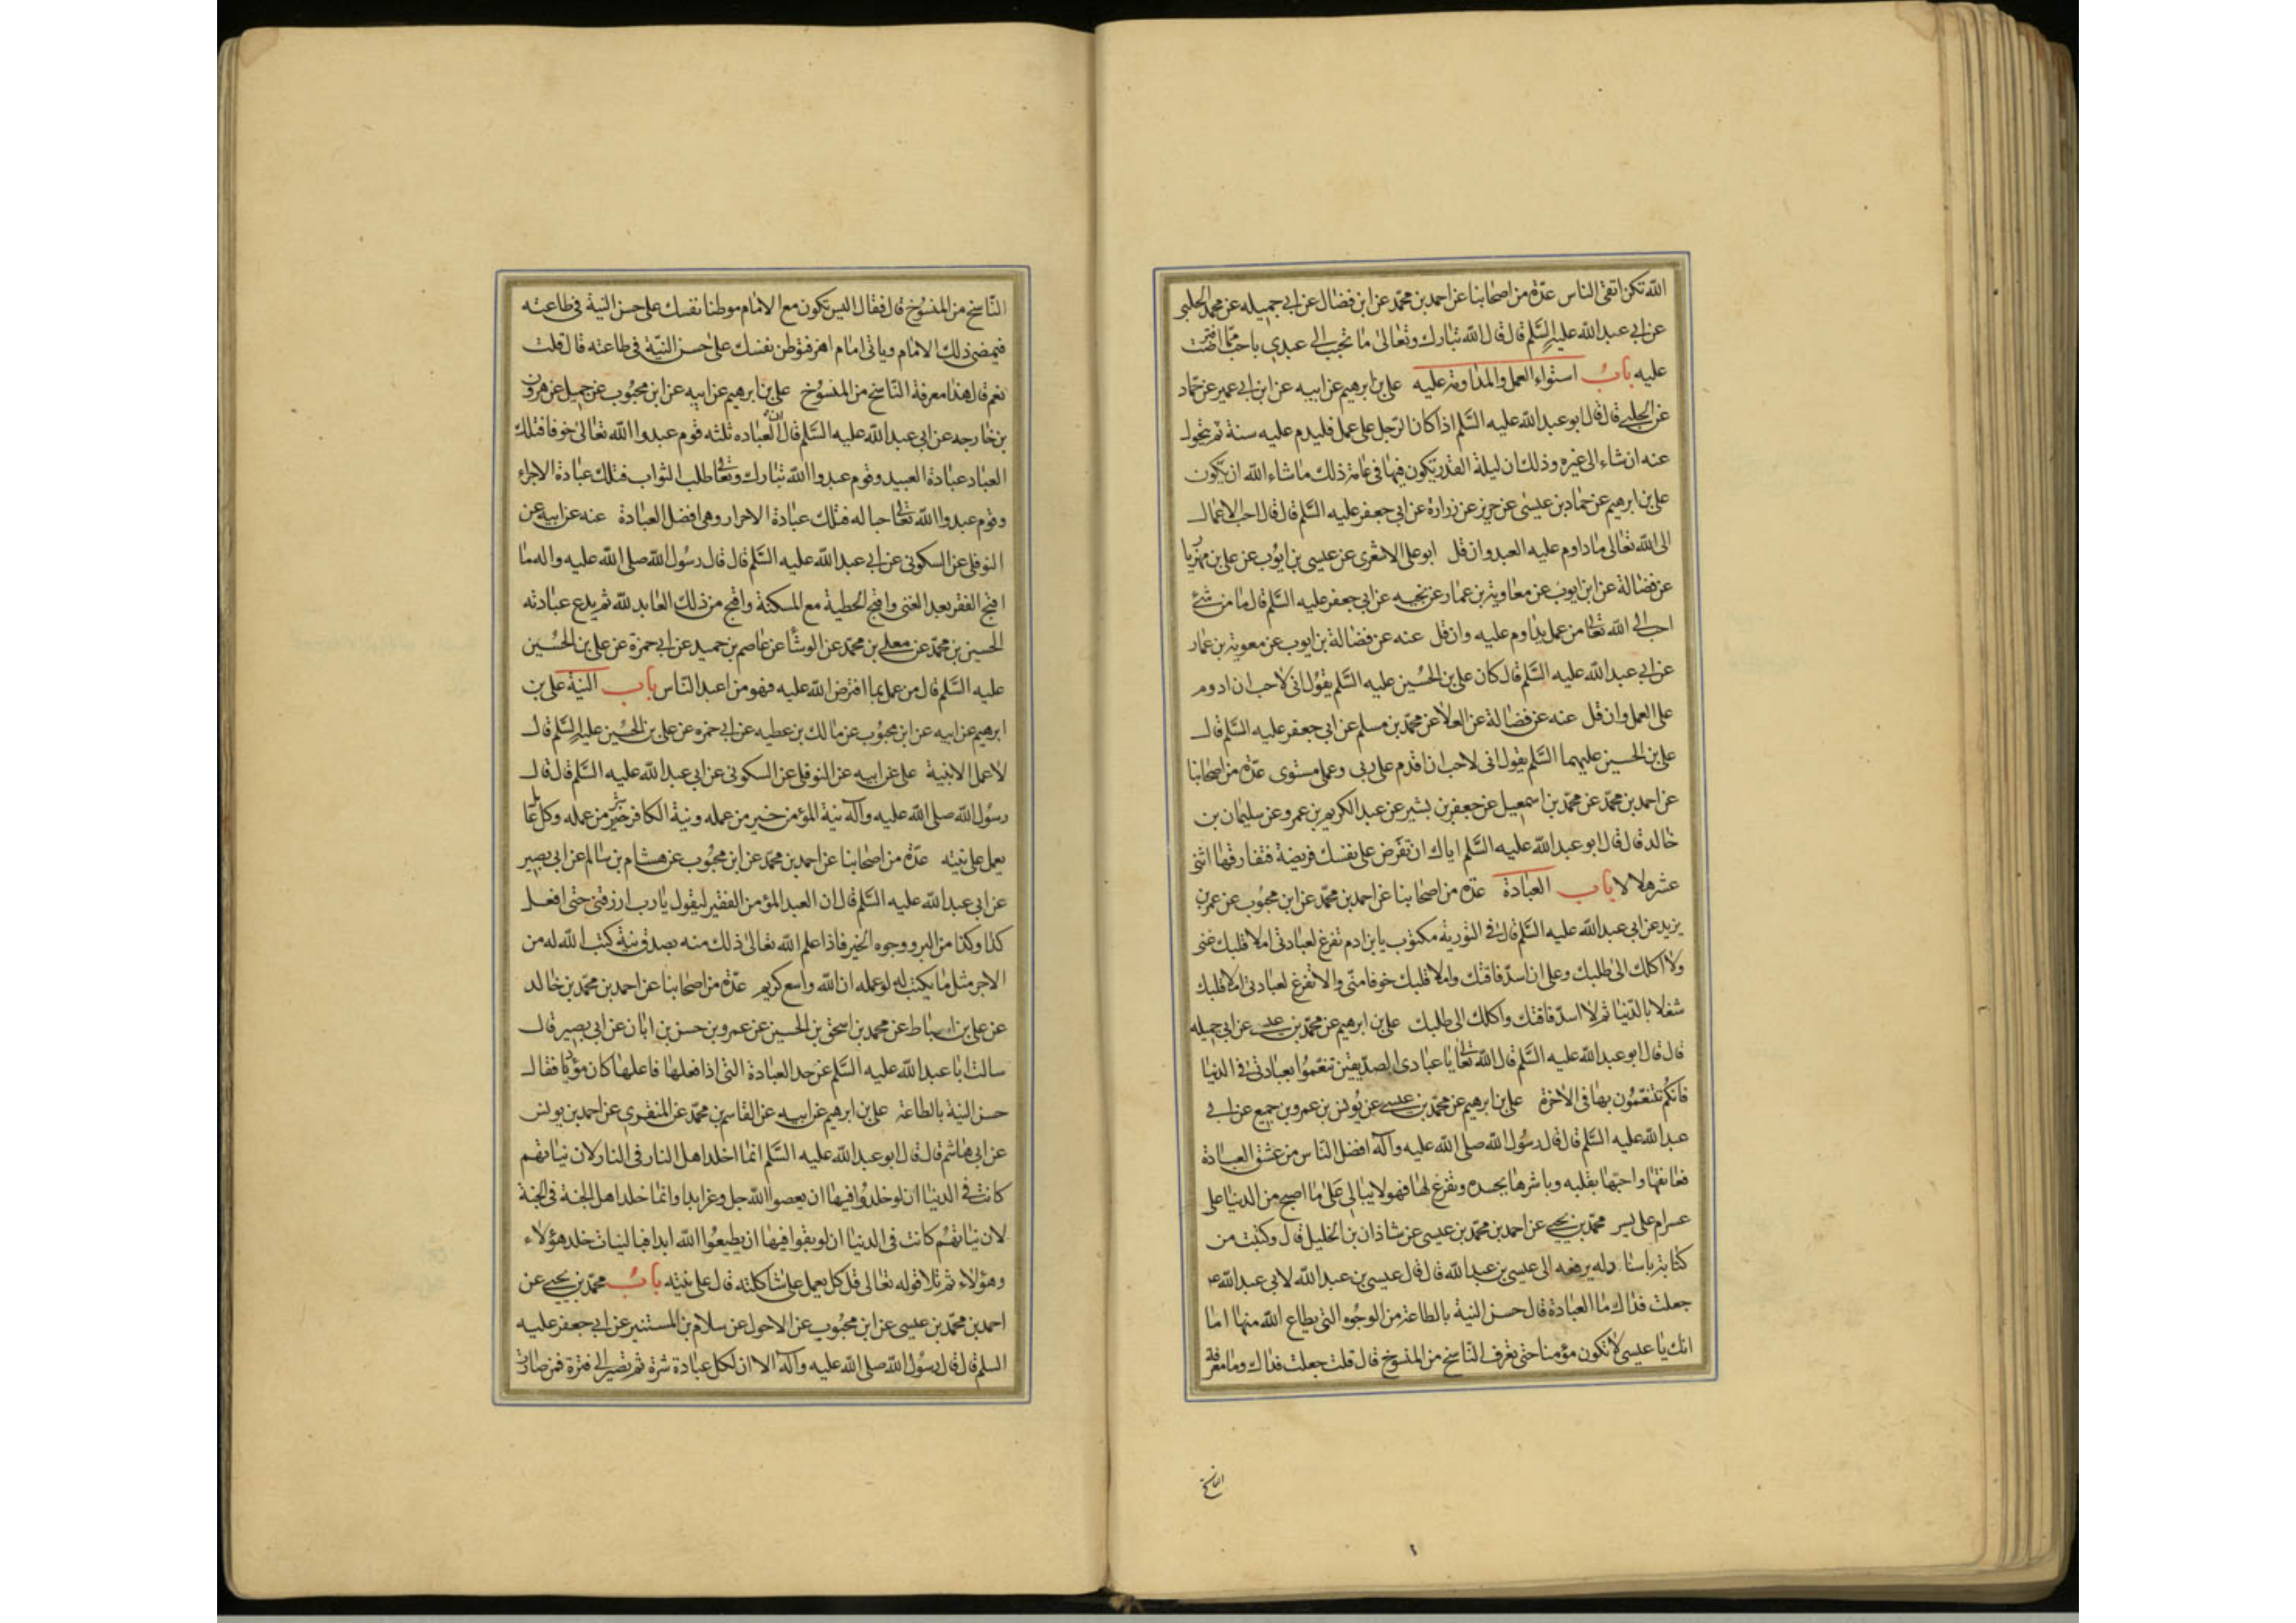 الله تكن اتقى الناس عدّة من اصحابنا عن احمد بن محمّد عن ابن فضال عن ابي جميله عن محمد الحلبي
عن ابي عبد الله عليه السّلم قال قال الله تبارك وتعالى ما تحبب الي عبدي باحب ممّا افترضت
عليه باب استواء العمل والمداومة عليه علي بن ابرهيم عن ابيه عن ابن ابي عمير عن حمّاد
عن الحلبي قال قال ابو عبد الله عليه السّلم اذا كان الرّجل على عمل فليدم عليه سنة ثم يتحول
عنه ان شاء الى غيره وذلك ان ليلة القدر يكون فيها في عامة ذلك ما شاء الله ان يكون
علي بن ابرهيم عن حمّاد بن عيسى عن حريز عن زرارة عن ابي جعفر عليه السّلم قال قال احب الاعمال
الى الله تعالى ما داوم عليه العبد وان قل ابو علي الاشعري عن عيسى بن ايّوب عن علي بن مهزيا
عن فضالة عن ابن ايوب عن معاوية بن عمار عن نجبه عن ابي جعفر عليه السّلم قال ما من شئ
احب الي الله تعالى من عمل يداوم عليه وان قل عنه عن فضالة بن ايوب عن معوية بن عمار
عن ابي عبد الله عليه السّلم قال كان علي بن الحُسين عليه السّلم يقول اني لاحب ان ادوم
على العمل وان قل عنه عن فضالة عن العلا عن محمّد بن مسلم عن ابي جعفر عليه السّلم قال
علي بن الحسين عليهما السّلم يقول اني لاحب ان اقدم على ربي وعملي مستوى عدّة من اصحابنا
عن احمد بن محمّد عن محمّد بن اسمعيل عن جعفر بن بشير عن عبد الكريم بن عمرو عن سليمان بن
خالد قال قال ابو عبد الله عليه السّلم اياك ان تفرض على نفسك فريضة فتفارقها اثنى
عشر هلالا باب العبادة عدّة من اصحابنا عن احمد بن محمّد عن ابن محبُوب عن عمر بن
يزيد عن ابي عبد الله عليه السّلم قال في التورية مكتوب يا بن ادم تفرغ لعبادتي املا قلبك غنى
ولا اكلك الى طلبك وعلي ان اسدّ فاقتك واملا قلبك خوفا منّي والا تفرغ لعبادتي املا قلبك
شغلا بالدّنيا ثم لا اسدّ فاقتك واكلك الى طلبك علي بن ابرهيم عن محمّد بن عيسى عن ابي جميله
قال قال ابو عبد الله عليه السّلم قال الله تعالى يا عبادي الصدّيقين تنعّموُا بعبادتي في الدنيا
فانكُم تتنعّمُون بها في الاخرة علي بن ابرهيم عن محمّد بن عيسى عن يُونس بن عمرو بن جميع عن ابي
عبد الله عليه السّلم قال قال رسُول الله صلى الله عليه وآله افضل الناس من عشق العبادة
فعانقها واحبّها بقلبه وباشرها بجسده وتفرغ لها فهو لا يبالي على ما اصبح من الدنيا على
عسر ام على يسر محمّد بن يحيى عن احمد بن محمّد بن عيسى عن شاذان بن الخليل قال وكتبت من
كتابه باسناد له يرفعه الى عيسى بن عبد الله قال قال عيسى بن عبد الله لابي عبد الله ع
جعلت فداك ما العبادة قال حسن النية بالطاعة من الوجُوه التي يطاع الله منها اما
انك يا عيسى لا تكون مؤمنا حتى تعرف الناسخ من المنسوخ قال قلت جعلت فداك وما معرفة
الناسخ
النّاسخ من المنسُوخ قال فقال اليس تكون مع الامام موطنا نفسك على حسن النية في طاعته
فيمضي ذلك الامام وياتي امام اخر فتوطن نفسك على حسن النيّة في طاعته قال قلت
نعم قال هذا معرفة النّاسخ من المنسُوخ علي بن ابرهيم عن ابيه عن ابن محبُوب عن جميل عن هرون
بن خارجه عن ابي عبد الله عليه السّلم قال ان العباده ثلثه قوم عبدوا الله تعالى خوفا فتلك
العباد عبادة العبيد وقوم عبدوا الله تبارك وتعالى طلب الثواب فتلك عبادة الاجراء
وقوم عبدوا الله تعالى حبا له فتلك عبادة الاحرار وهي افضل العبادة عنه عن ابيه عن
النوفلي عن السكوني عن ابي عبد الله عليه السّلم قال قال رسُول الله صلى الله عليه واله ما
اقبح الفقر بعد الغنى واقبح الخطية مع المسكنة واقبح من ذلك العابد لله ثم يدع عبادته
الحسين بن محمّد عن معلى بن محمّد عن الوشّأ عن عاصم بن حميد عن ابي حمزة عن علي بن الحُسين
عليه السّلم قال من عمل بما افترض الله عليه فهو من اعبد النّاس باب النية علي بن
ابرهيم عن ابيه عن ابن محبُوب عن مالك بن عطيه عن ابي حمزه عن علي بن الحُسين عليه السّلم قال
لا عمل الا بنية علي عن ابيه عن النوفلي عن السكوني عن ابي عبد الله عليه السّلم قال قال
رسُول الله صلى الله عليه وآله نية المؤمن خير من عمله ونية الكافر شر من عمله وكل عامل
يعمل على نيته عدّة من اصحابنا عن احمد بن محمّد عن ابن محبُوب عن هشام بن سالم عن ابي بصير
عن ابي عبد الله عليه السّلم قال ان العبد المؤمن الفقير ليقول يا رب ارزقني حتى افعل
كذا وكذا من البر ووجوه الخير فاذا علم الله تعالى ذلك منه بصدق نية كتب الله له من
الاجر مثل ما يكتب له لو عمله ان الله واسع كريم عدّة من اصحابنا عن احمد بن محمّد بن خالد
عن علي بن اسباط عن محمد بن اسحق بن الحسين عن عمرو بن حسن بن ابان عن ابي بصير قال
سالت ابا عبد الله عليه السّلم عن حد العبادة التي اذا فعلها فاعلها كان مؤديا فقال
حسن النية بالطاعة علي بن ابرهيم عن ابيه عن القاسم بن محمّد عن المنقري عن احمد بن يونس
عن ابي هاشم قال قال ابو عبد الله عليه السّلم انما اخلد اهل النار في النار لان نياتهم
كانت في الدنيا ان لو خلدُوا فيها ان يعصوا الله جل وعز ابدا وانما خلد اهل الجنة في الجنة
لان نياتهُم كانت في الدنيا ان لو بقوا فيها ان يطيعُوا الله ابدا فبالنيات خلد هؤلاء
وهؤلاء ثم تلا قوله تعالى قل كل يعمل على شاكلته قال على نيته باب محمّد بن يحيى عن
احمد بن محمّد بن عيسى عن ابن محبُوب عن الاحول عن سلام بن المستنير عن ابي جعفر عليه
السلم قال قال رسُول الله صلى الله عليه وآله الا ان لكل عبادة شرة ثم تصير الى فترة فمن صارت